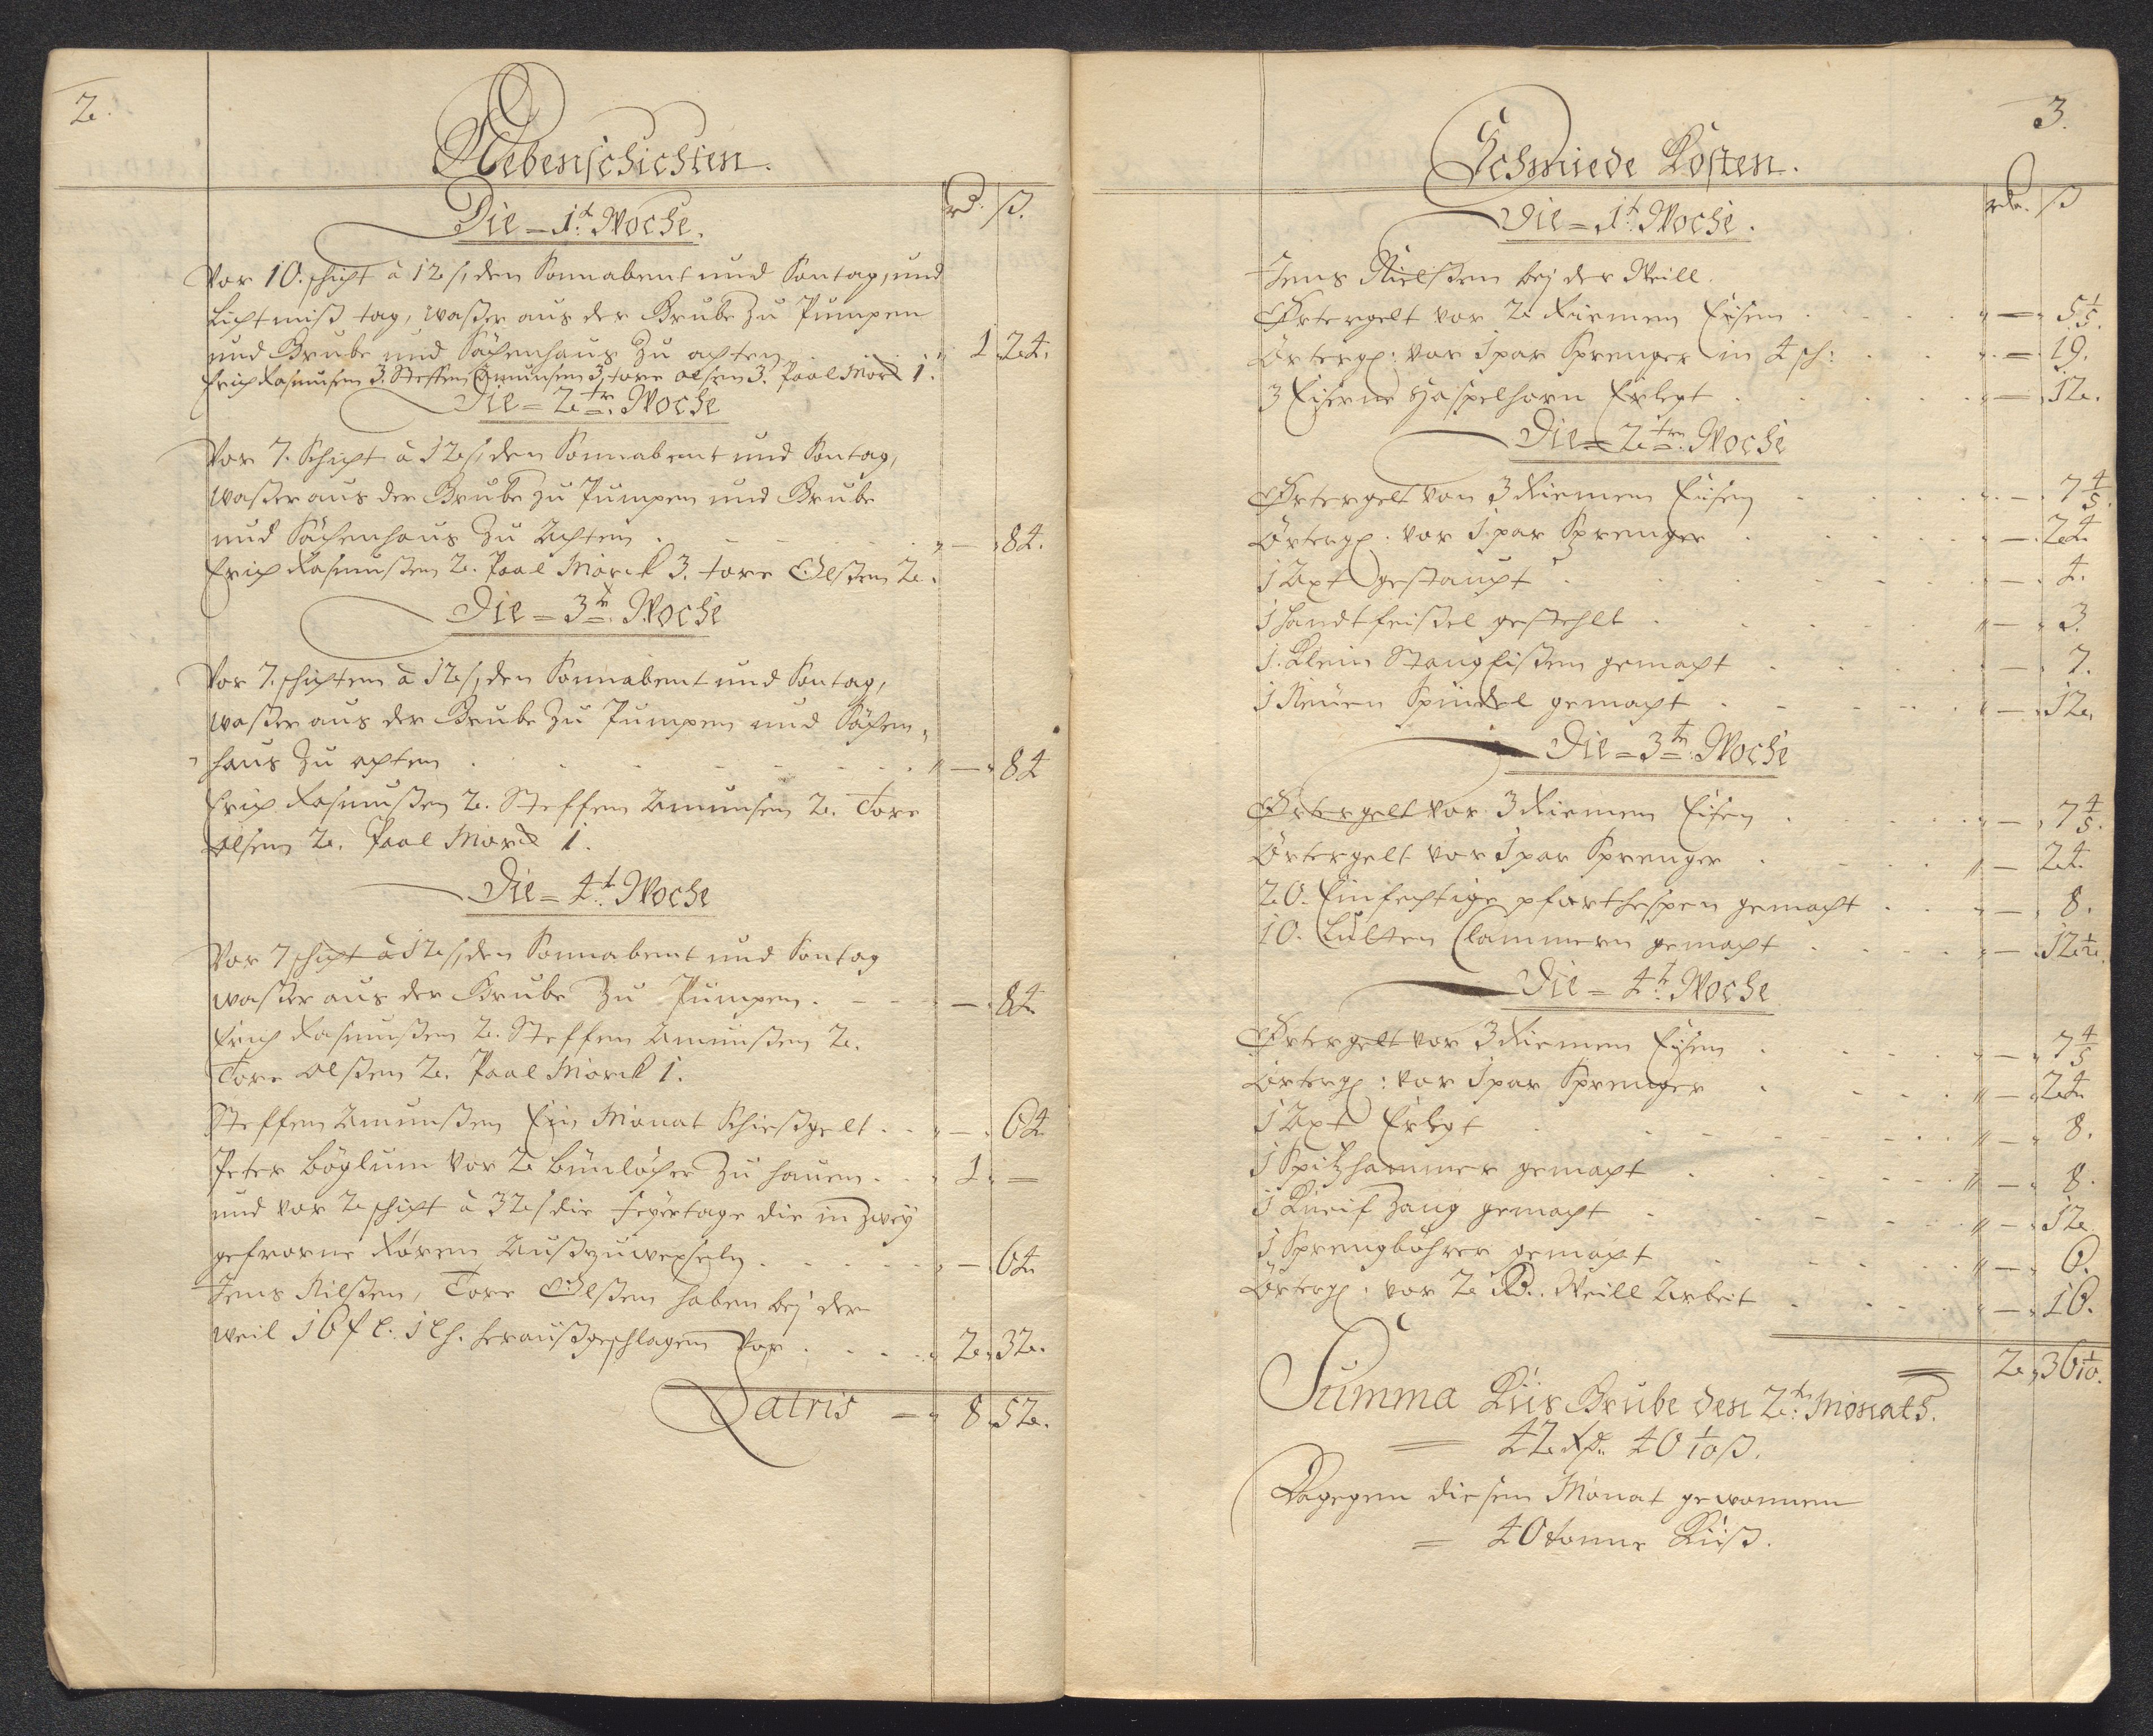 2.
Nebenschichten.
rd. ß.
Die = 1t. Woche.
Vor 10. schicht à 12 s, den Sonnabent und Sontag, und
Lichtmiß tag, waßer aus der Grube zu Pumpen
und Grube und Sächenhaus zu achten . . . 1. 24.
Erich Rasmusen 3. Steffen Amunsen 3, tore olsen 3. Paal Morck 1.
Die = 2te. Woche
Vor 7. Schicht à 12 s, den Sonnabent und Sontag,
waßer aus der Grube zu Pumpen und Grube
und Sächenhaus zu Achten . . . — 84.
Erich Rasmußen 2. Paal Morck 3. tore Olßen 2.
Die = 3te. Woche
Vor 7. schichten à 12 s, den Sonnabent und Sontag,
waßer aus der Grube zu Pumpen und Sächen,
haus zu achten . . . — 84
Erich Rasmußen 2. Steffen Amunsen 2. Tore
olsen 2. Paal Morck 1.
Die = 4t. Woche
Vor 7 schicht à 12 s, den Sonnabent und Sontag
waßer aus der Grube zu Pumpen. — 84
Erich Rasmußen 2. Steffen Amunßen 2.
Tore olßen 2. Paal Morck 1.
Steffen Amunßen Ein Monat Schießgelt . . — 64
Peter Böglum vor 2 bünlöcher zu hauen . . 1. —
und vor 2 schicht à 32 s die Feyertage die in zwey
gefrorne Rören Außzuwexseln . . . — 64
Jens Nilßen, Tore Olßen haben bej der
weil 16 f l. 1 lh. heraußgeschlagen vor . . . 2. 32.
Latris — 8. 52.
3.
Schmiede Kosten.
rdr. ß
Die = 1t. Woche.
Jens Nielßen bej der Weill.
Örtergelt vor 2 Riemen Eisen . . . — 5 1/5.
Örterg: vor 1 par Sprenger in 4 sch: . . — 19.
3 Eiserne Haspelhorn Erlegt . . . — 12.
Die = 2te. Woche
Örtergelt von 3 Riemen Eisen . . . — 7 4/5.
Örterg: vor 1. par Sprenger . . . — 24.
1 Axt gestaucht . . . — 4.
1 Handtfeißel gestehlt . . . — 3.
1. Klein Stang Eißen gemacht . . . — 7.
1 Neuen Spindel gemacht . . . — 12.
Die = 3te. Woche
Örtergelt vor 3 Riemen Eisen . . . — 7 4/5.
Örtergelt vor 1 par Sprenger . . . — 24.
20. Einfechtige pforthespen gemacht . . — 8.
10. Lutten Clammern gemacht . . . — 12 1/2.
Die = 4t. Woche
Örtergelt vor 3 Riemen Eisen . . . — 7 4/5
Örterg: vor 1 par Sprenger . . . — 24
1 Axt Erlegt . . . — 8.
1 Spitzhammer gemacht . . . — 8.
1 Kneif Zang gemacht . . . — 12
1 Sprengbohrer gemacht . . . — 6.
Örterg: vor 2 Weill Arbeit . . . — 16.
2. 36 1/10.
Summa Kiis Grube den 2t. Monats.
= 42 Rdr. 40 1/10 ß.
Dagegen diesen Monat gewonnen
= 40 tonne Kiiß.